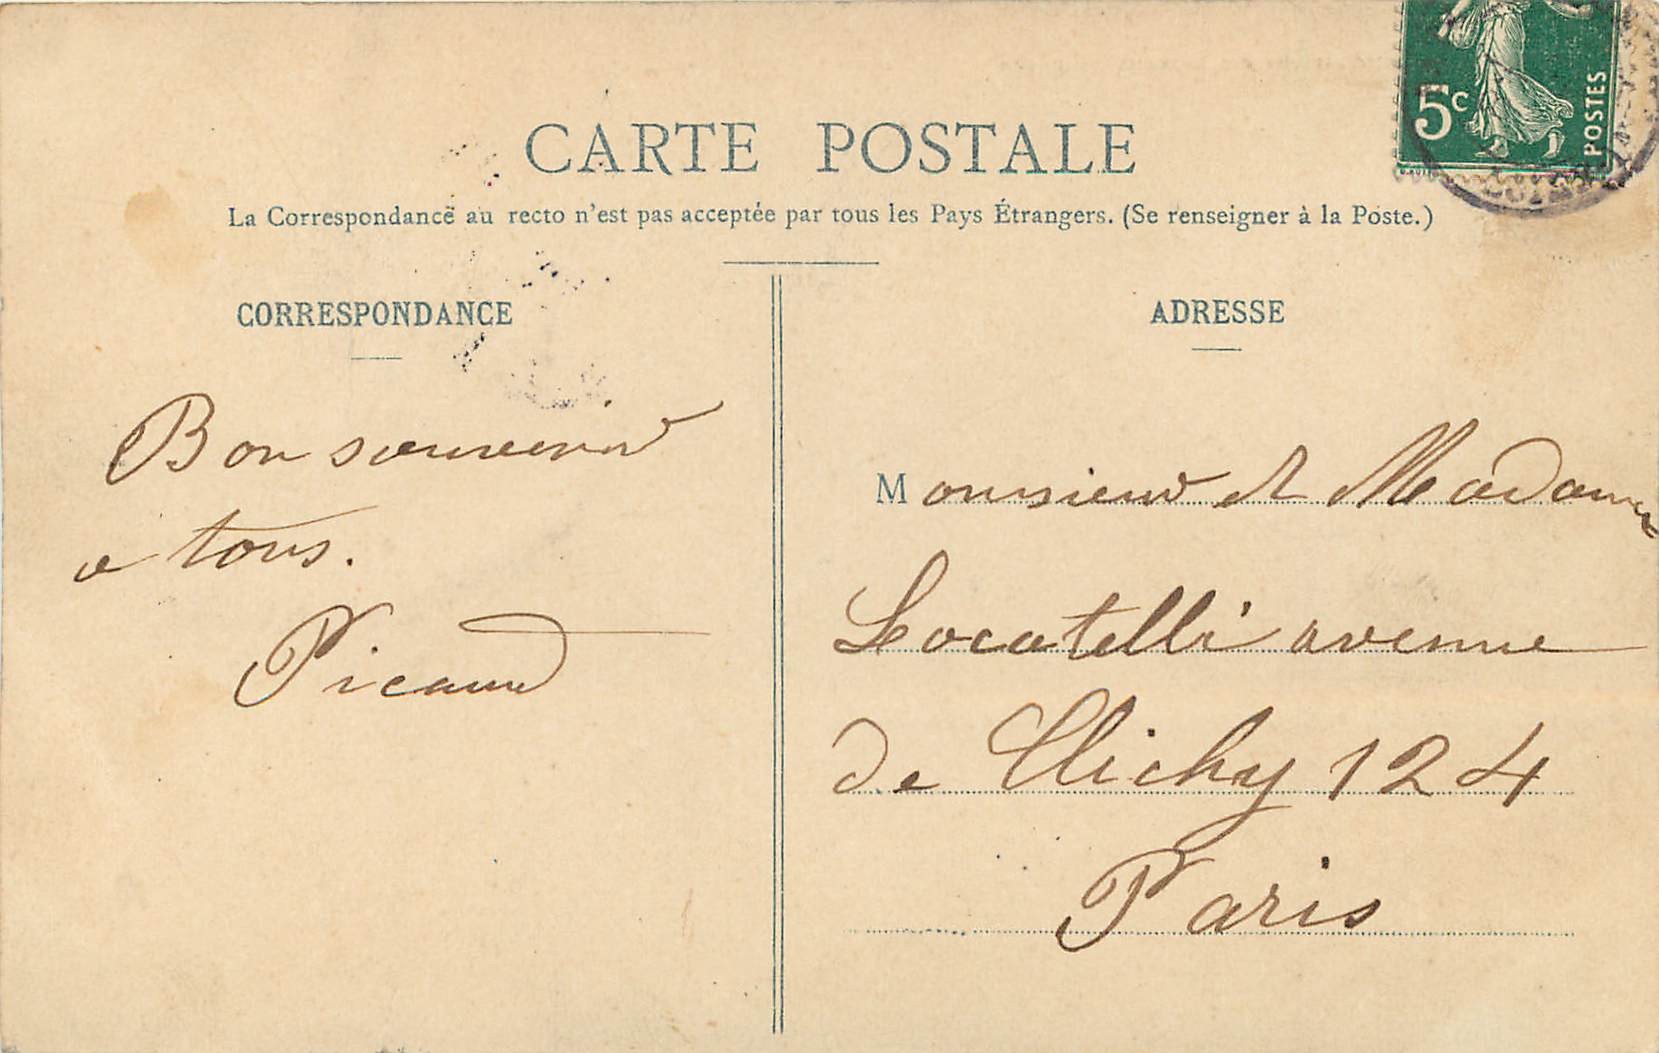 5c
POSTES
CARTE POSTALE
La Correspondance au recto n'est pas acceptée par tous les Pays Étrangers. (Se renseigner à la Poste.)
CORRESPONDANCE
Bon souvenir
a tous.
Picaud
ADRESSE
Monsieur et Madame
Locatelli avenue
de Clichy 124
Paris